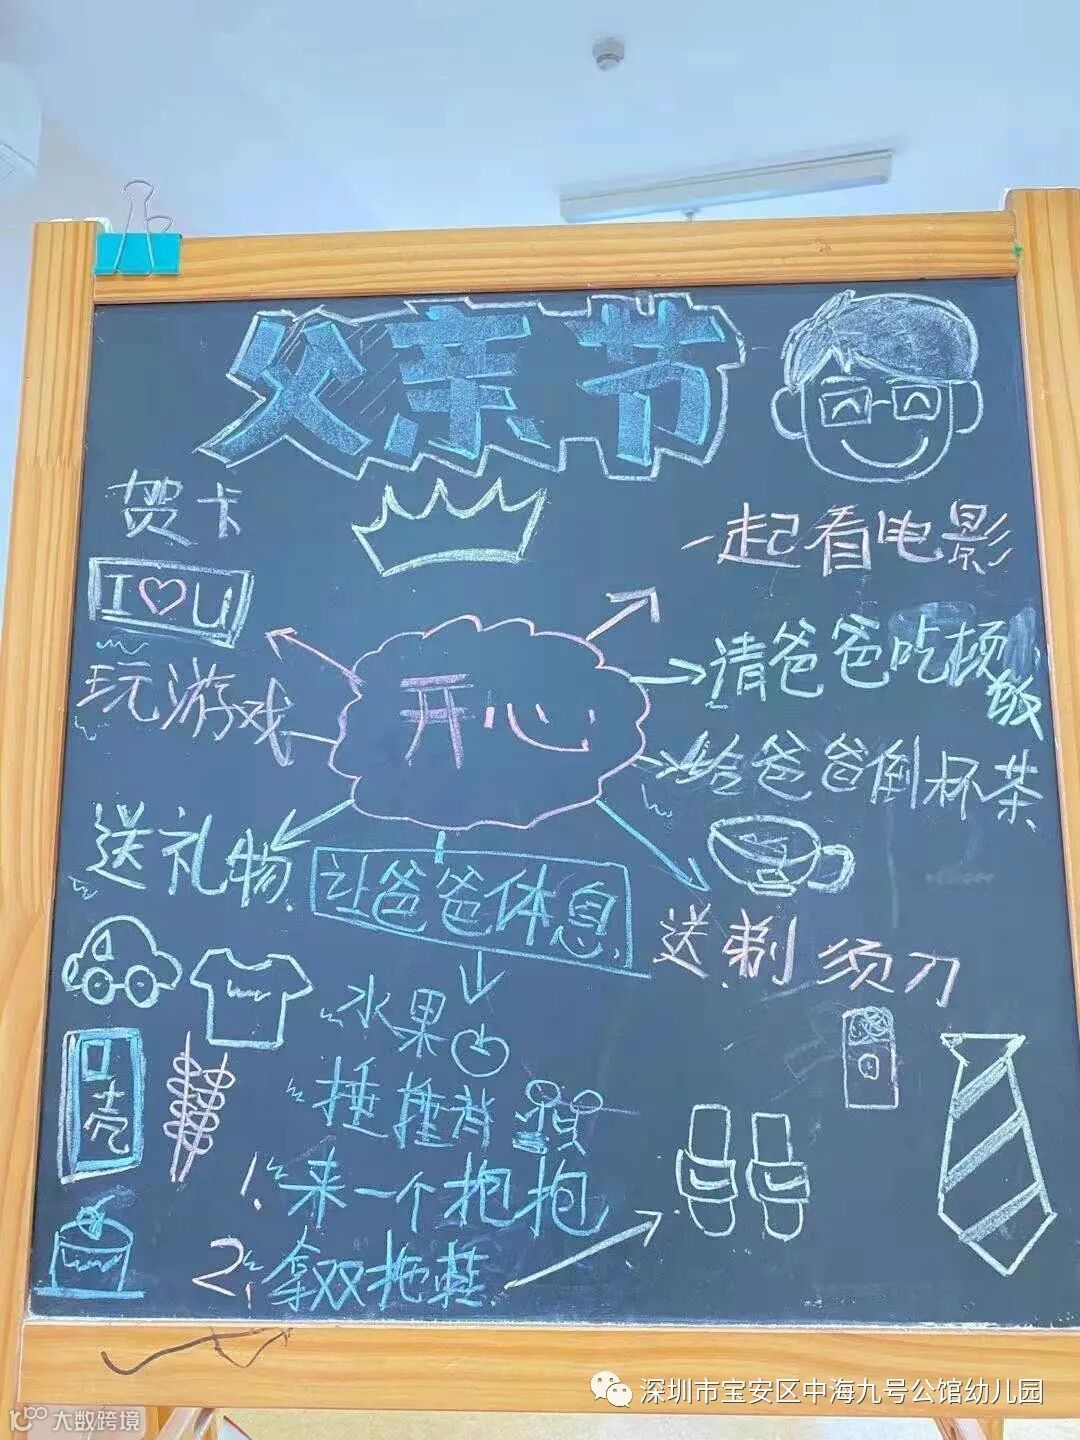 父亲节
贺卡
I♡U
一起看电影
请爸爸吃顿饭
玩游戏
开心
给爸爸倒杯茶
送礼物
让爸爸休息
送剃须刀
水果
壳
捶捶背
1. 来一个抱抱
2. 拿双拖鞋
深圳市宝安区中海九号公馆幼儿园
大数跨境